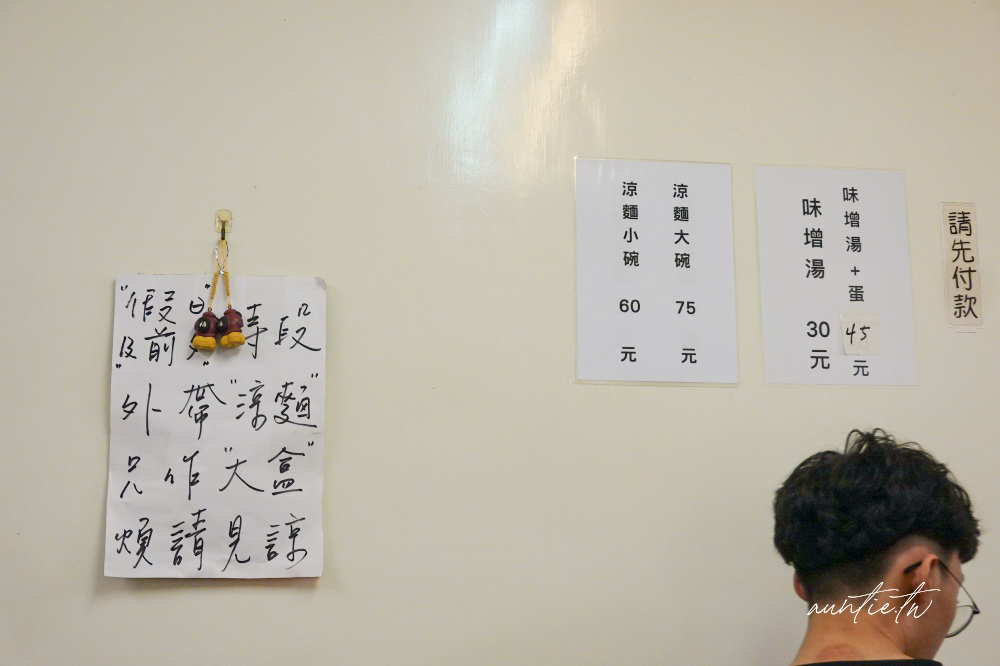 "假日"時段
"及前夕"
外帶"涼麵"
只作"大盒"
煩請見諒
涼麵大碗 75 元
涼麵小碗 60 元
味增湯+蛋 45 元
味增湯 30 元
請先付款
auntie.tw